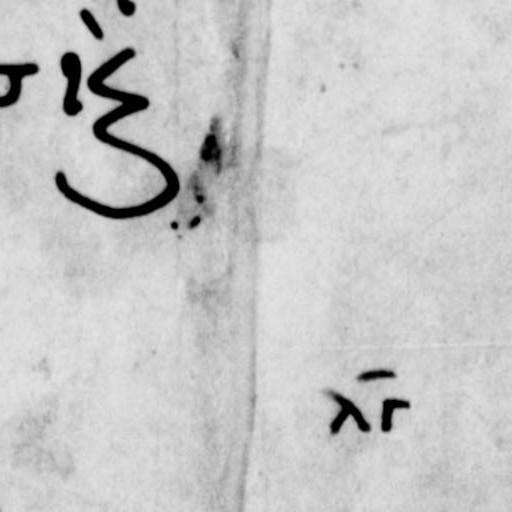 σιξ
λγ̅